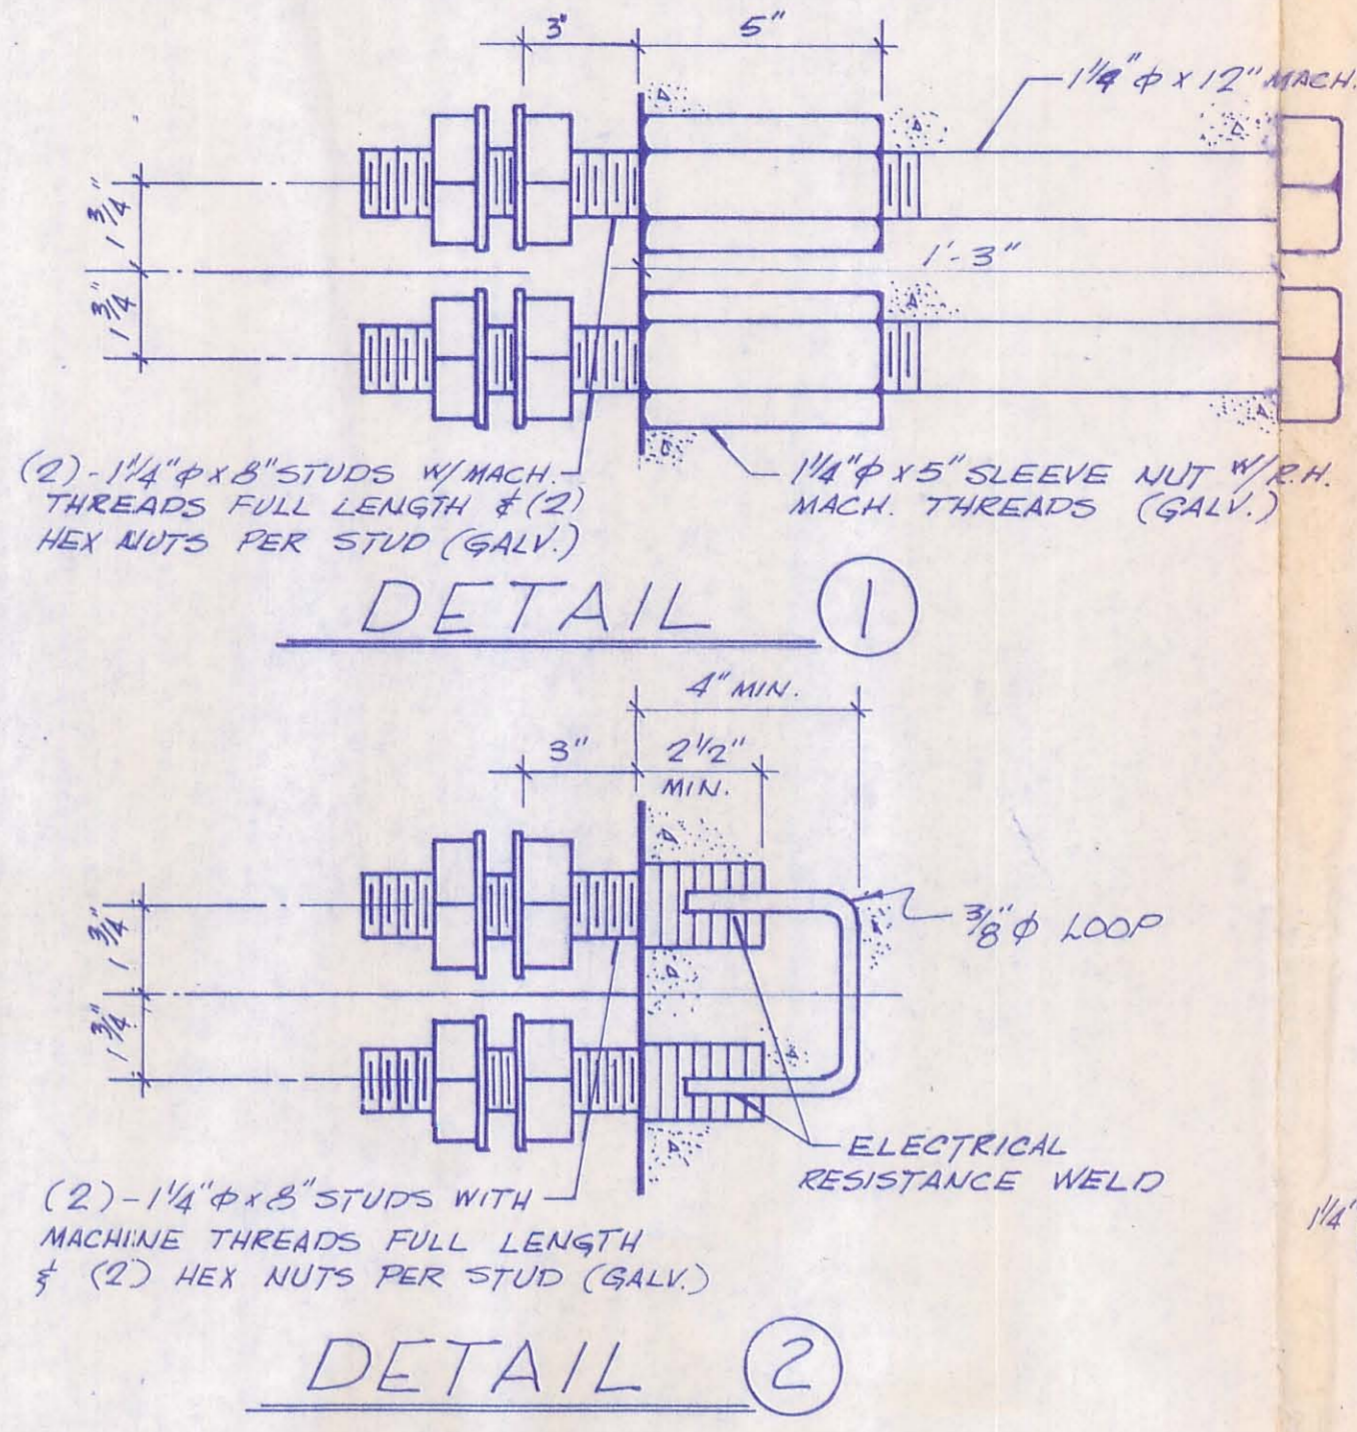 3"
5"
1 1/4" φ x 12" MACH.
1 3/4"
1 3/4"
1'-3"
(2) - 1 1/4" φ x 8" STUDS W/ MACH.
THREADS FULL LENGTH & (2)
HEX NUTS PER STUD (GALV.)
1 1/4" φ x 5" SLEEVE NUT W/ R.H.
MACH. THREADS (GALV.)
DETAIL 1
4" MIN.
3"
2 1/2"
MIN.
1 3/4"
1 3/4"
3/8" φ LOOP
ELECTRICAL
RESISTANCE WELD
(2) - 1 1/4" φ x 8" STUDS WITH
MACHINE THREADS FULL LENGTH
& (2) HEX NUTS PER STUD (GALV.)
1 1/4"
DETAIL 2